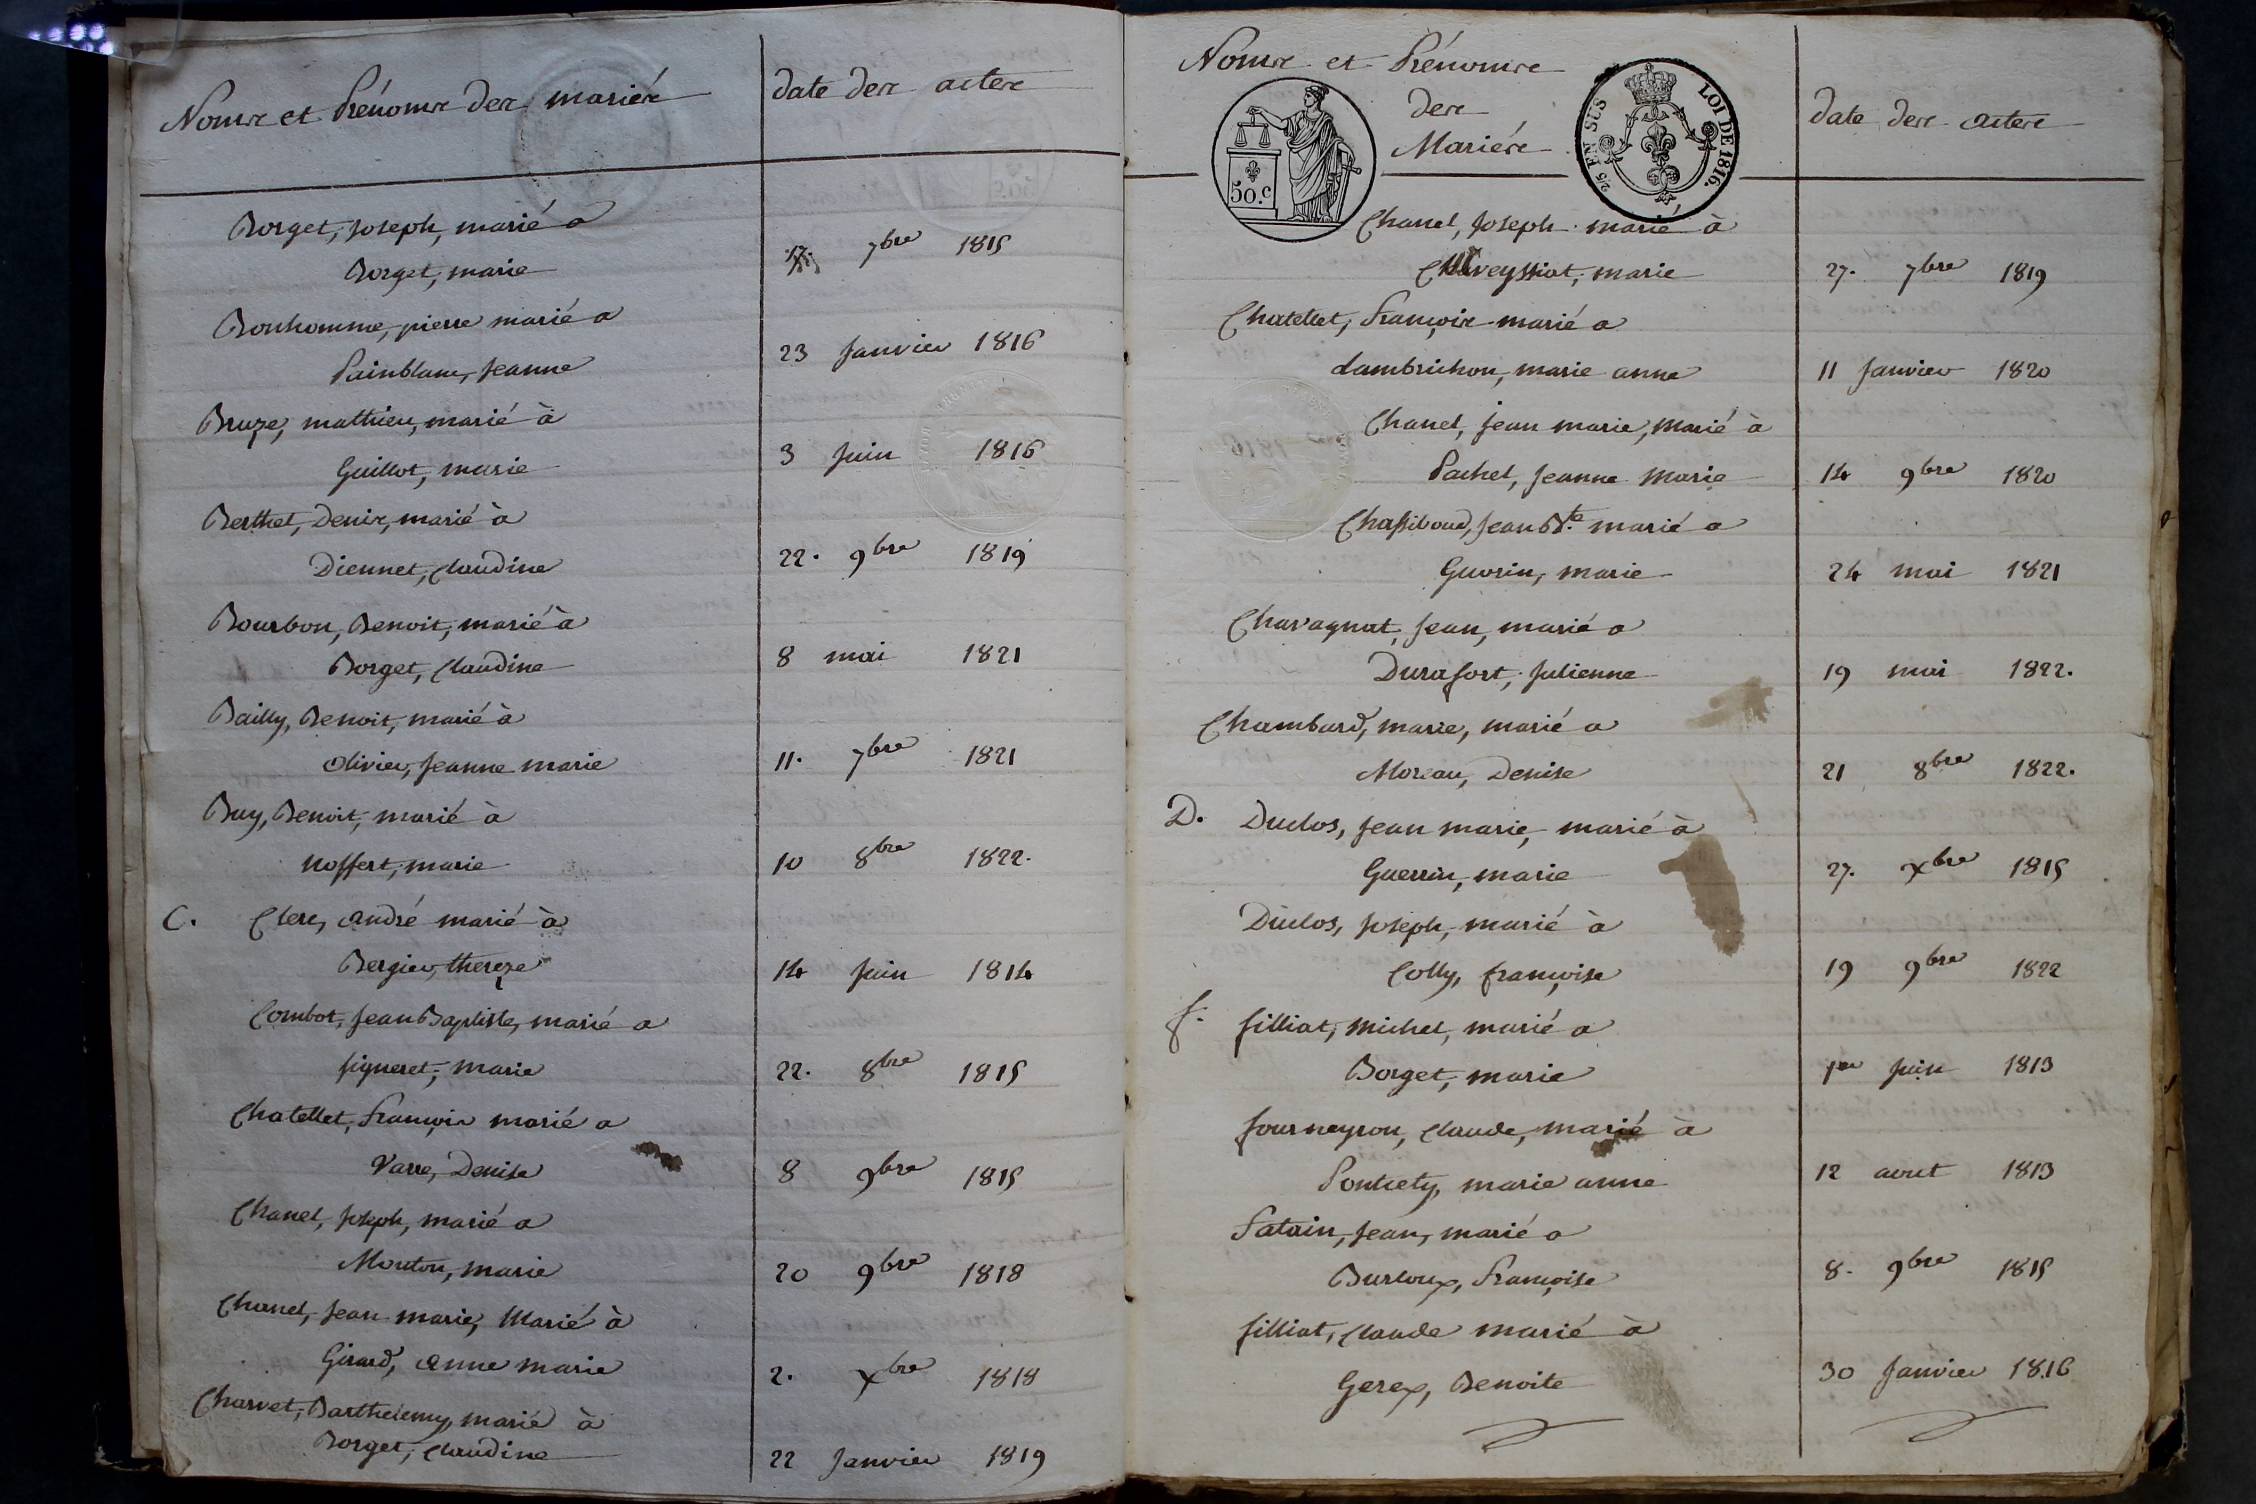 Noms et Prénoms des mariés
date des actes
Borget, Joseph, marié a
Borget, marie
7bre 1815
Bonhomme, pierre marié a
Painblanc, Jeanne
23 Janvier 1816
Bruze, mathieu, marié à
Guillot, marie
3 Juin 1816
Berthet, Denis, marié à
Diennet, Claudine
22. 9bre 1819
Bourbon, Benoit, marié à
Borget, Claudine
8 mai 1821
Bailly, Benoit, marié à
Olivier, Jeanne marie
11. 7bre 1821
Buy, Benoit, marié à
Noffert, marie
10 8bre 1822.
C. Clerc, André marié à
Bergier, thereze
14 Juin 1814
Combot, Jean Baptiste, marié a
figneret, marie
22. 8bre 1815
Chatellet, François marié a
Varre, Denise
8 9bre 1815
Chanel, Joseph, marié a
Mouton, marie
20 9bre 1818
Chanel, Jean marie, Marié à
Girard, Anne marie
2. Xbre 1818
Charvet, Barthelemy, marié à
Borget, Claudine
22 Janvier 1819
Noms et Prénoms
des
Mariés
date des actes
50.c
2/5 EN SUS
LOI DE 1816.
Chanel, Joseph marié à
marie
27. 7bre 1819
Chatellet, François marié a
Lambrichon, marie anne
11 Janvier 1820
Chanel, Jean marie, Marié à
Pachet, Jeanne Marie
14 9bre 1820
Chassiboud, Jean Bte. marié a
Guerin, marie
24 mai 1821
Chavagnat, Jean, marié a
Durafort, Julienne
19 mai 1822.
Chambard, marie, marié a
Moreau, Denise
21 8bre 1822.
D. Duclos, Jean marie, marié à
Guerrin, marie
27. Xbre 1815
Duclos, Joseph, marié à
Colly, françoise
19 9bre 1822
f. filliat, michel, marié a
Borget, marie
1er Juin 1813
fourneyron, Claude, marié à
Pontcety, marie anne
12 aout 1813
Fatain, Jean, marié a
Burtoux, Françoise
8. 9bre 1815
filliat, Claude marié à
Gerex, Benoite
30 Janvier 1816